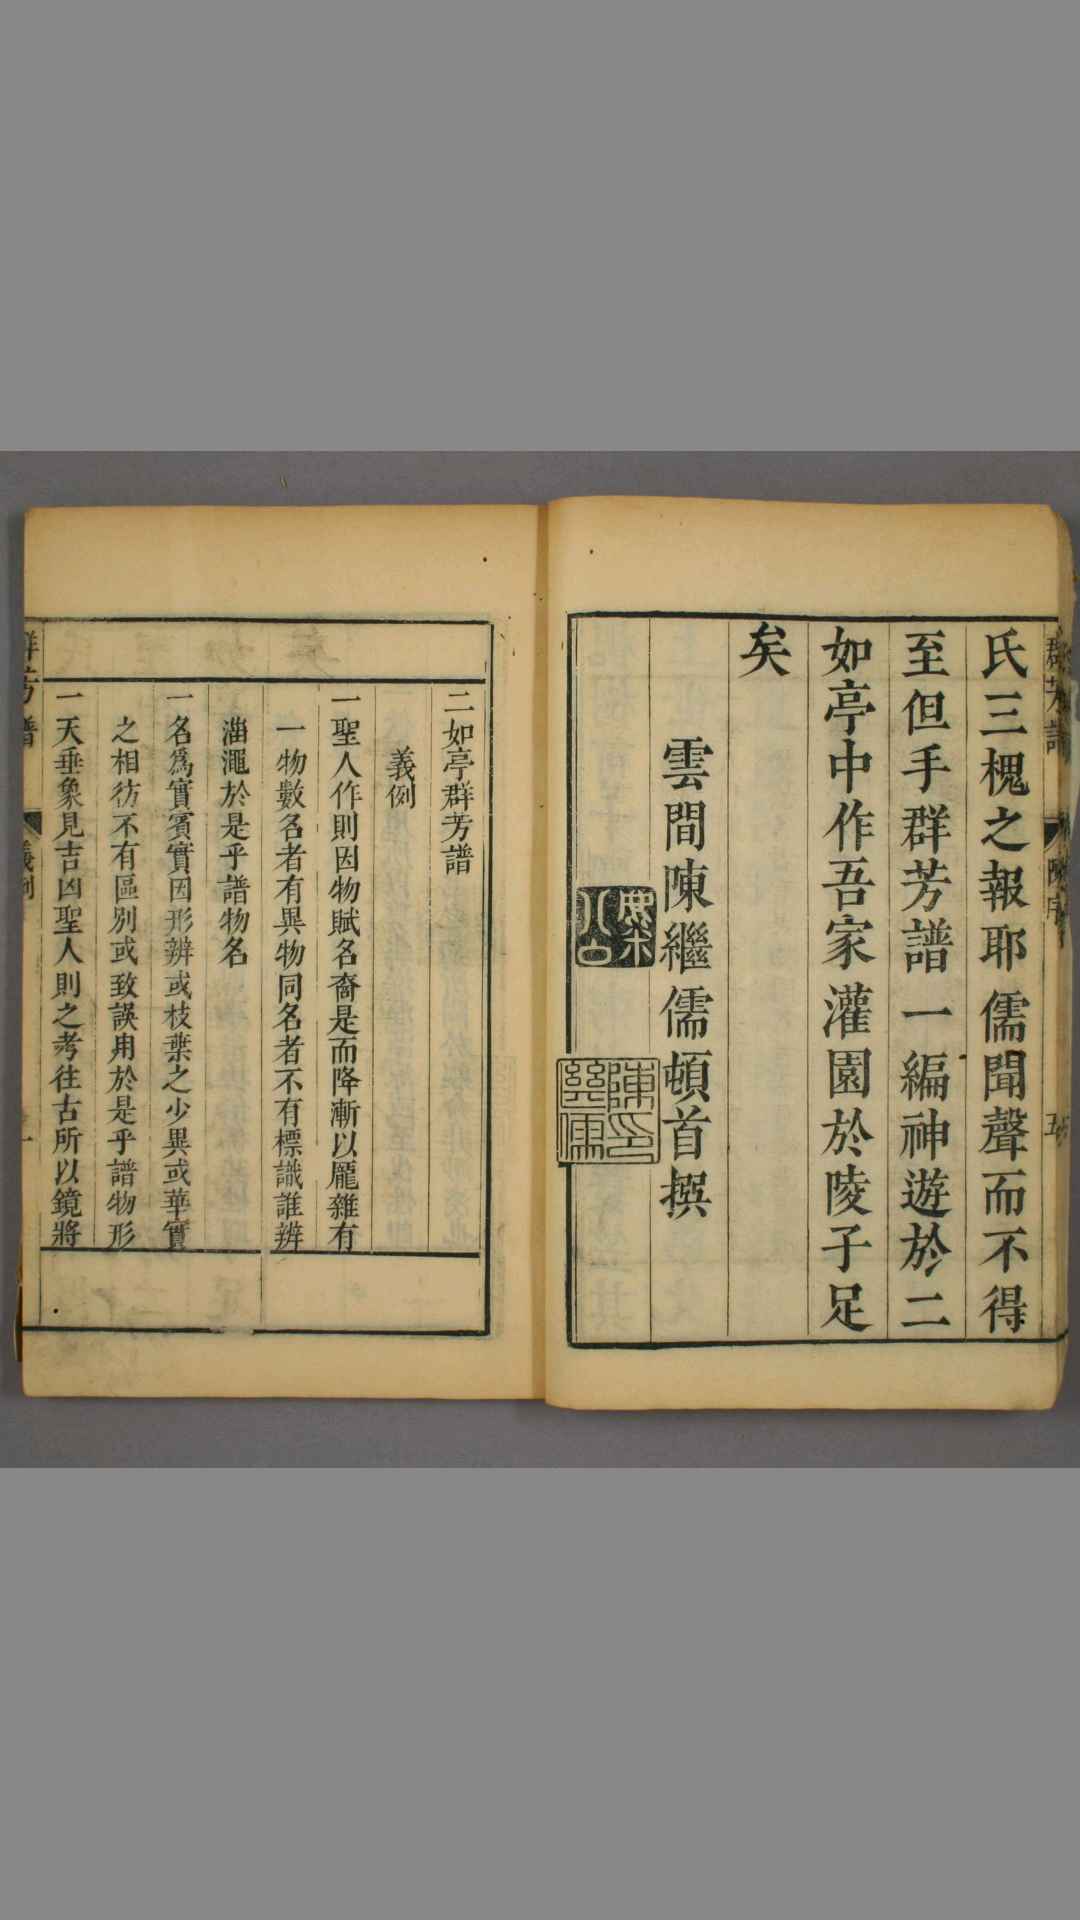 氏三槐之報耶儒聞聲而不得
至但手群芳譜一編神遊於二
如亭中作吾家灌園於陵子足
矣
雲間陳繼儒頓首撰
二如亭群芳譜
義例
一聖人作則因物賦名裔是而降漸以厖雜有
一物數名者有異物同名者不有標識誰辨
淄澠於是乎譜物名
一名爲實賓實因形辨或枝葉之少異或華實
之相彷不有區別或致誤用於是乎譜物形
一天垂象見吉凶聖人則之考往古所以鏡將